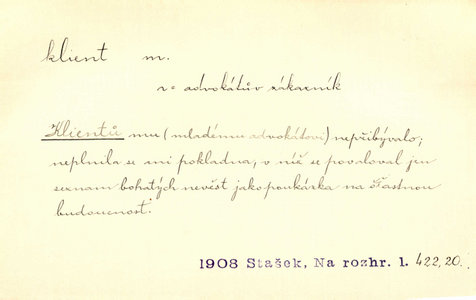 klient m.
r= advokátův zákazník
Klientů mu (mladému advokátovi) nepřibývalo;
neplnila se mi pokladna, v níž se povaloval jen
seznam bohatých nevěst jako poukázka na šťastnou
budoucnost.
1908 Stašek, Na rozhr. 1. 422,20.